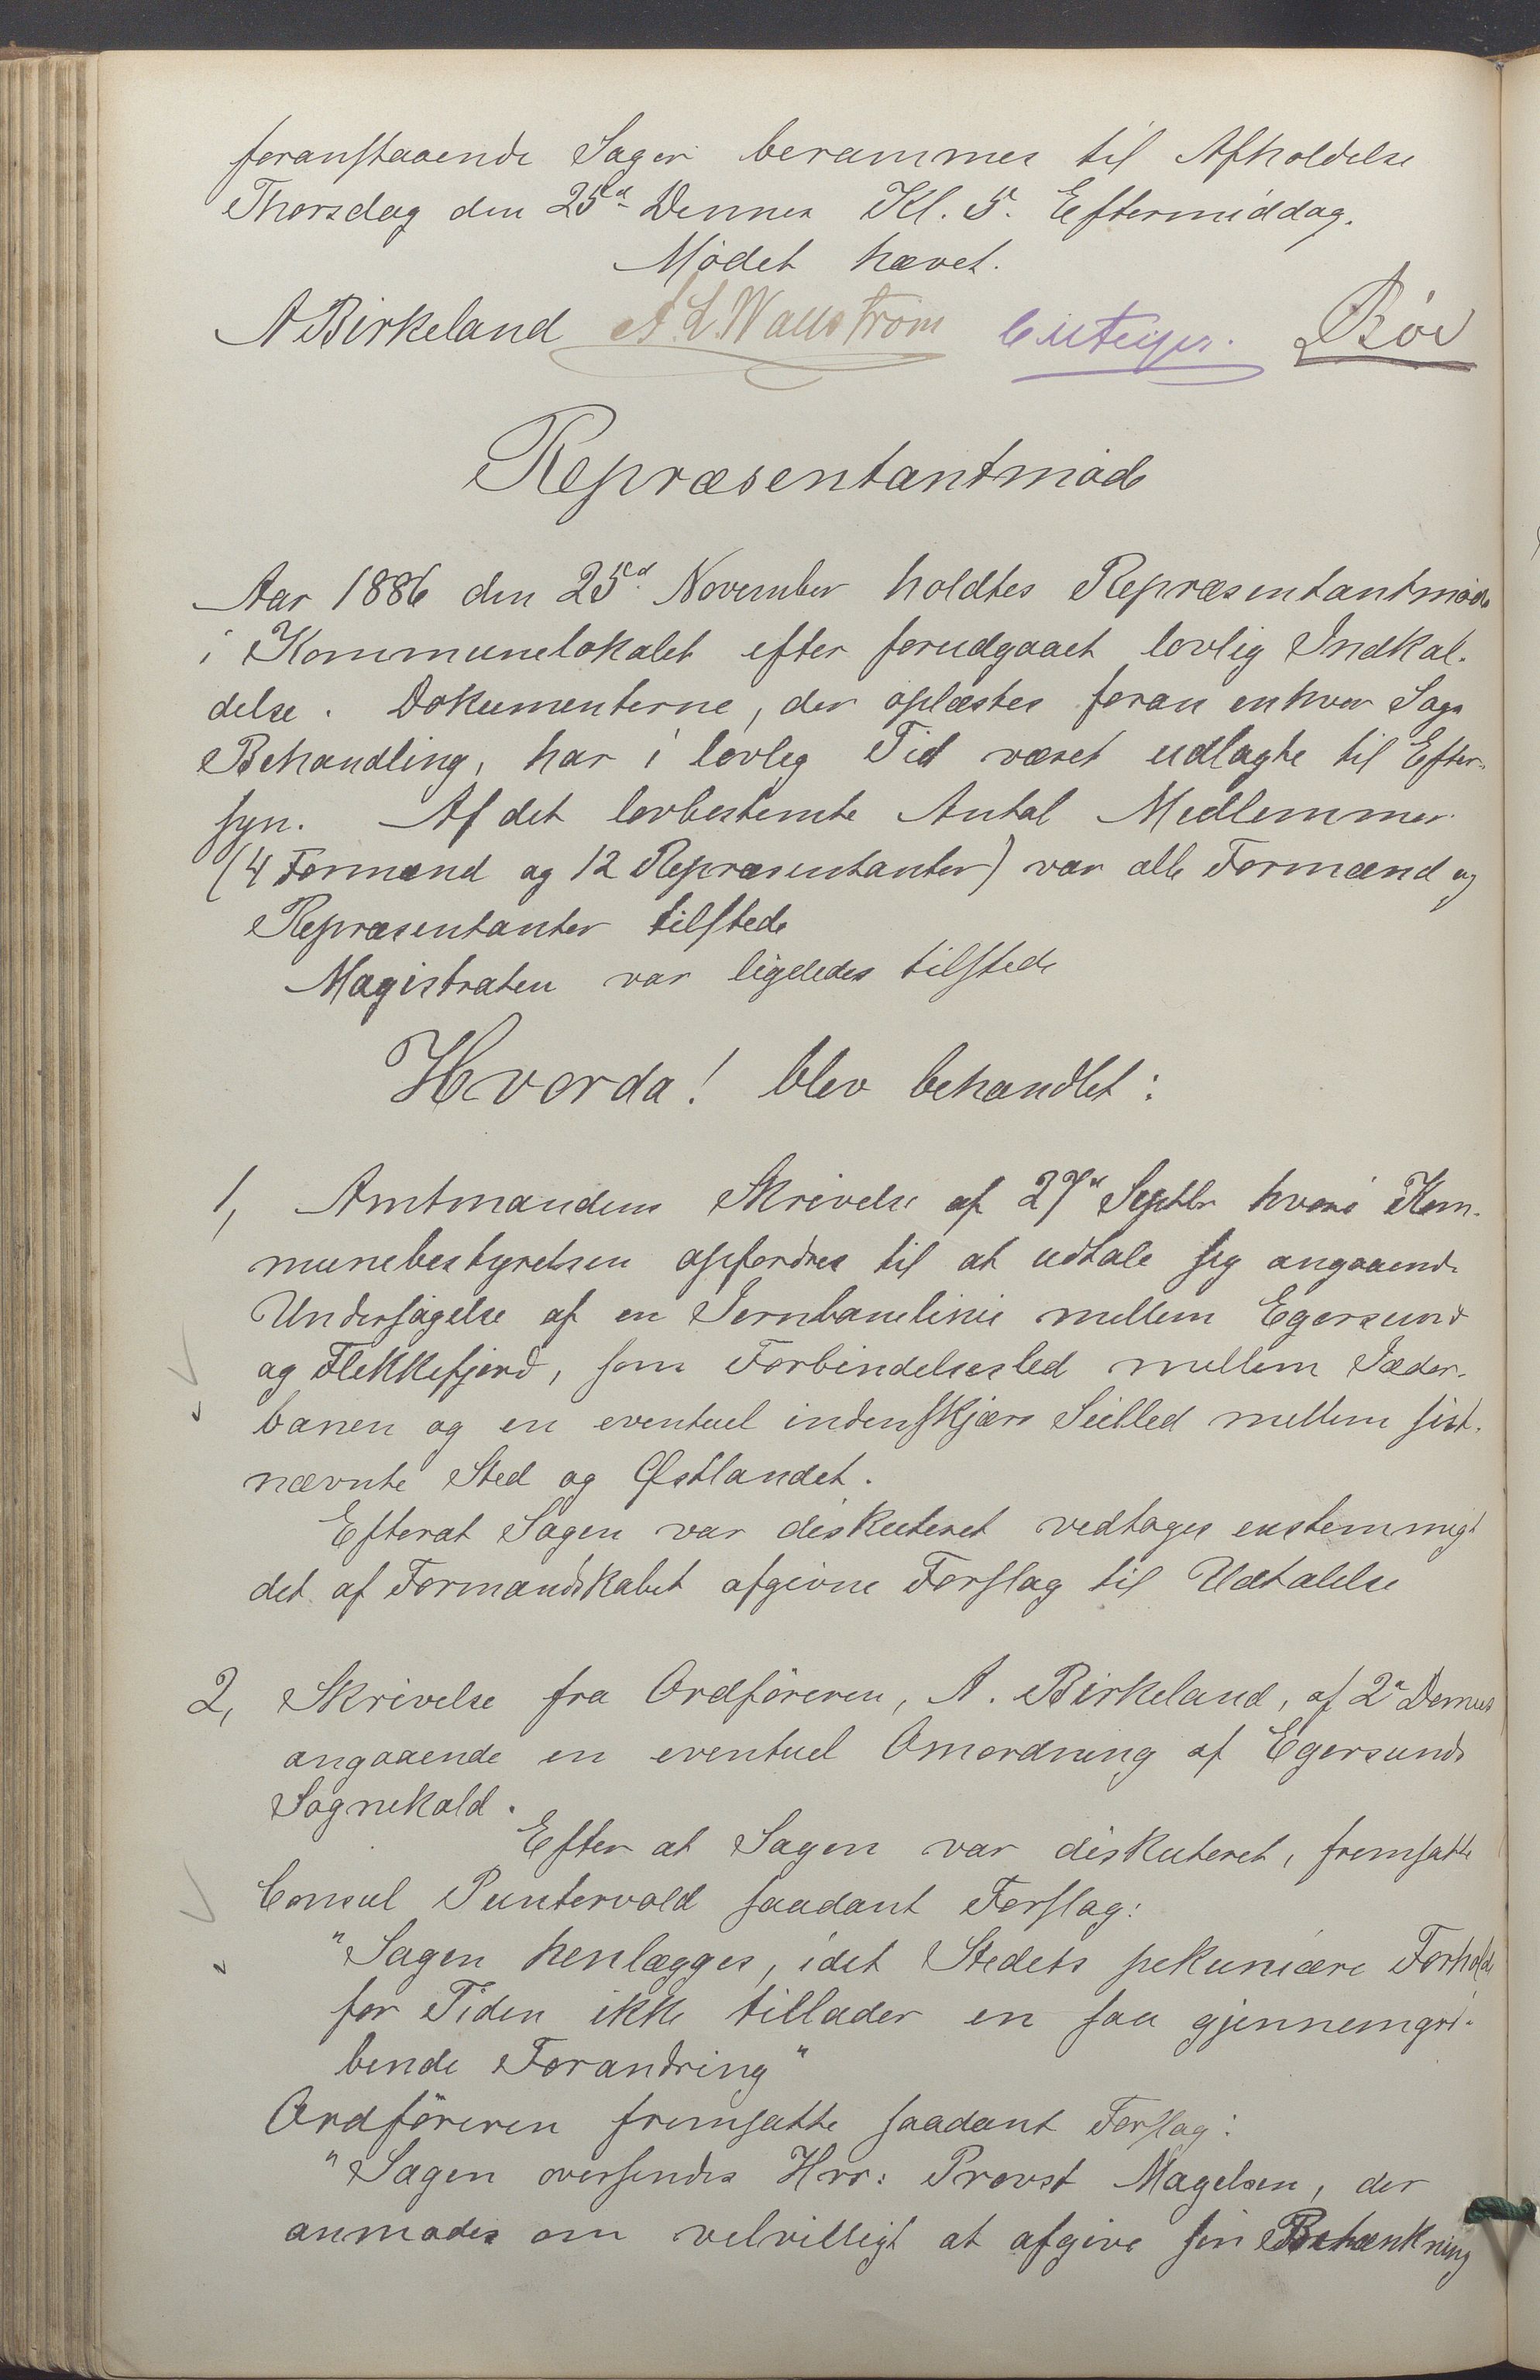 foranstaaende Sager berammes til Afholdelse
Thorsdag den 25d Dennes Kl. 5. Eftermiddag.
Mödet hævet.
A Birkeland A. L. Wallström Bøe
Repræsentantmöde
Aar 1886 den 25d November holdtes Repræsentantmöde
i Kommunelokalet efter forudgaaet lovlig Indkal-
delse. Dokumenterne, der oplæstes foran enhver Sags
Behandling, har i lovlig Tid været udlagte til Efter-
syn. Af det lovbestemte Antal Medlemmer
(4 Formænd og 12 Repræsentanter) var alle Formænd og
Repræsentanter tilstede
Magistraten var ligeledes tilstede
Hvorda! blev behandlet:
1, Amtmandens Skrivelse af 27d Septbr hvori Kom-
munebestyrelsen opfordres til at udtale sig angaaende
Undersögelse af en Jernbanelinie mellem Egersund
og Flekkefjord, som Forbindelsesled mellem Jæder-
banen og en eventuel indenskjærs Seilled mellem sist-
nævnte Sted og Østlandet.
Efterat Sagen var diskuteret vedtoges enstemmigt
det af Formandskabet afgivne Forslag til Udtalelse
2, Skrivelse fra Ordföreren, A. Birkeland, af 2d Dennes
angaaende en eventuel Omordning af Egersunds
Sognekald.
Efter at Sagen var diskuteret, fremsatte
Consul Puntervold saadant Forslag:
"Sagen henlægges, idet Stedets pekuniære Forholde
for Tiden ikke tillader en saa gjennemgri-
bende Forandring"
Ordföreren fremsatte saadant Forslag:
"Sagen oversendes Hrr: Provst Magelsen, der
anmodes om velvilligt at afgive sin Betænkning